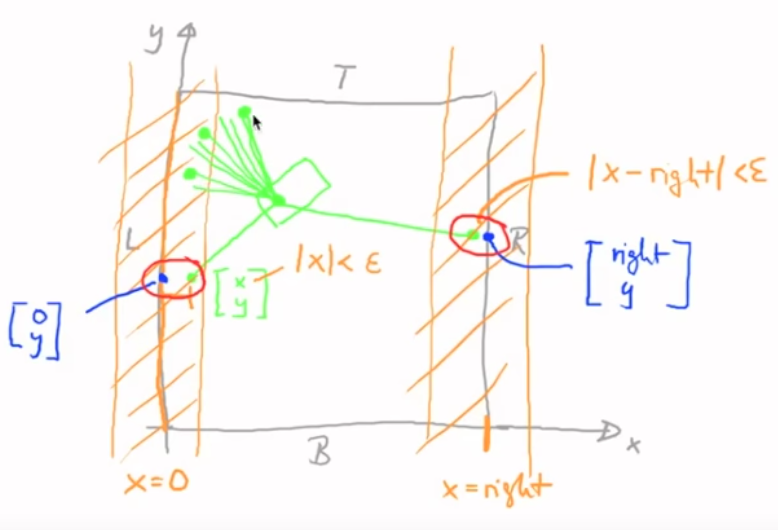 y
T
|x-right|<ε
L
R
[x y]
|x|<ε
[right y]
[0 y]
B
x
x=0
x=right